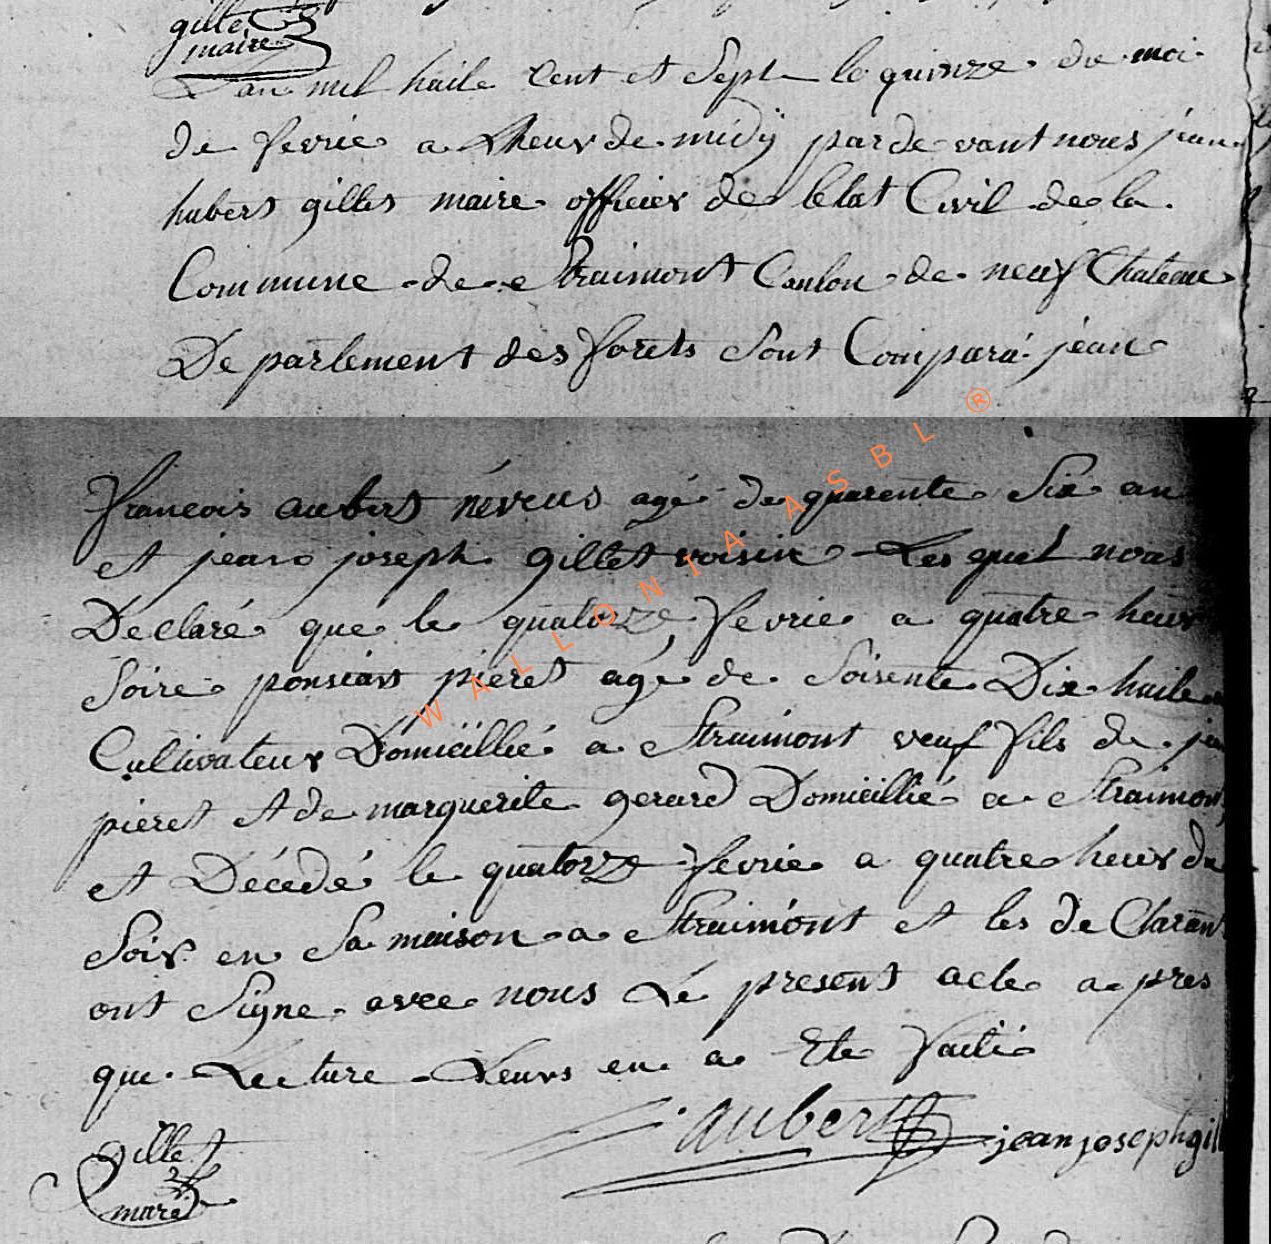 gillet
maire
L'an mil huite Cent et Sept le quinze du moi
de fevrie a Lheur de midÿ par de vant nous jean
hubert gilles maire officier de letat Civil de la
Commune de Straimont Canton de neuf Chateau
De partement des forets Sont Comparé jean
francois aubert néveus agé de quarente Six an
et jean joseph gillet voisin Les quel nous
Declaré que le quatorze fevrie a quatre heur
Soire ponsian pieret agé de Soisente Dix huite
Cultivateur Domicillié a Straimont veuf fils de
pieret et de marguerite gerard Domicillié a Straimont
et Décedé le quatorze fevrie a quatre heur du
Soir en Sa maison a Straimont et les de Claran
ont Signe avec nous Le present acte a pres
que Lecture Leurs en a Ete faite
aubert jean joseph gill
gillet
maire
WALLONIA ASBL ®